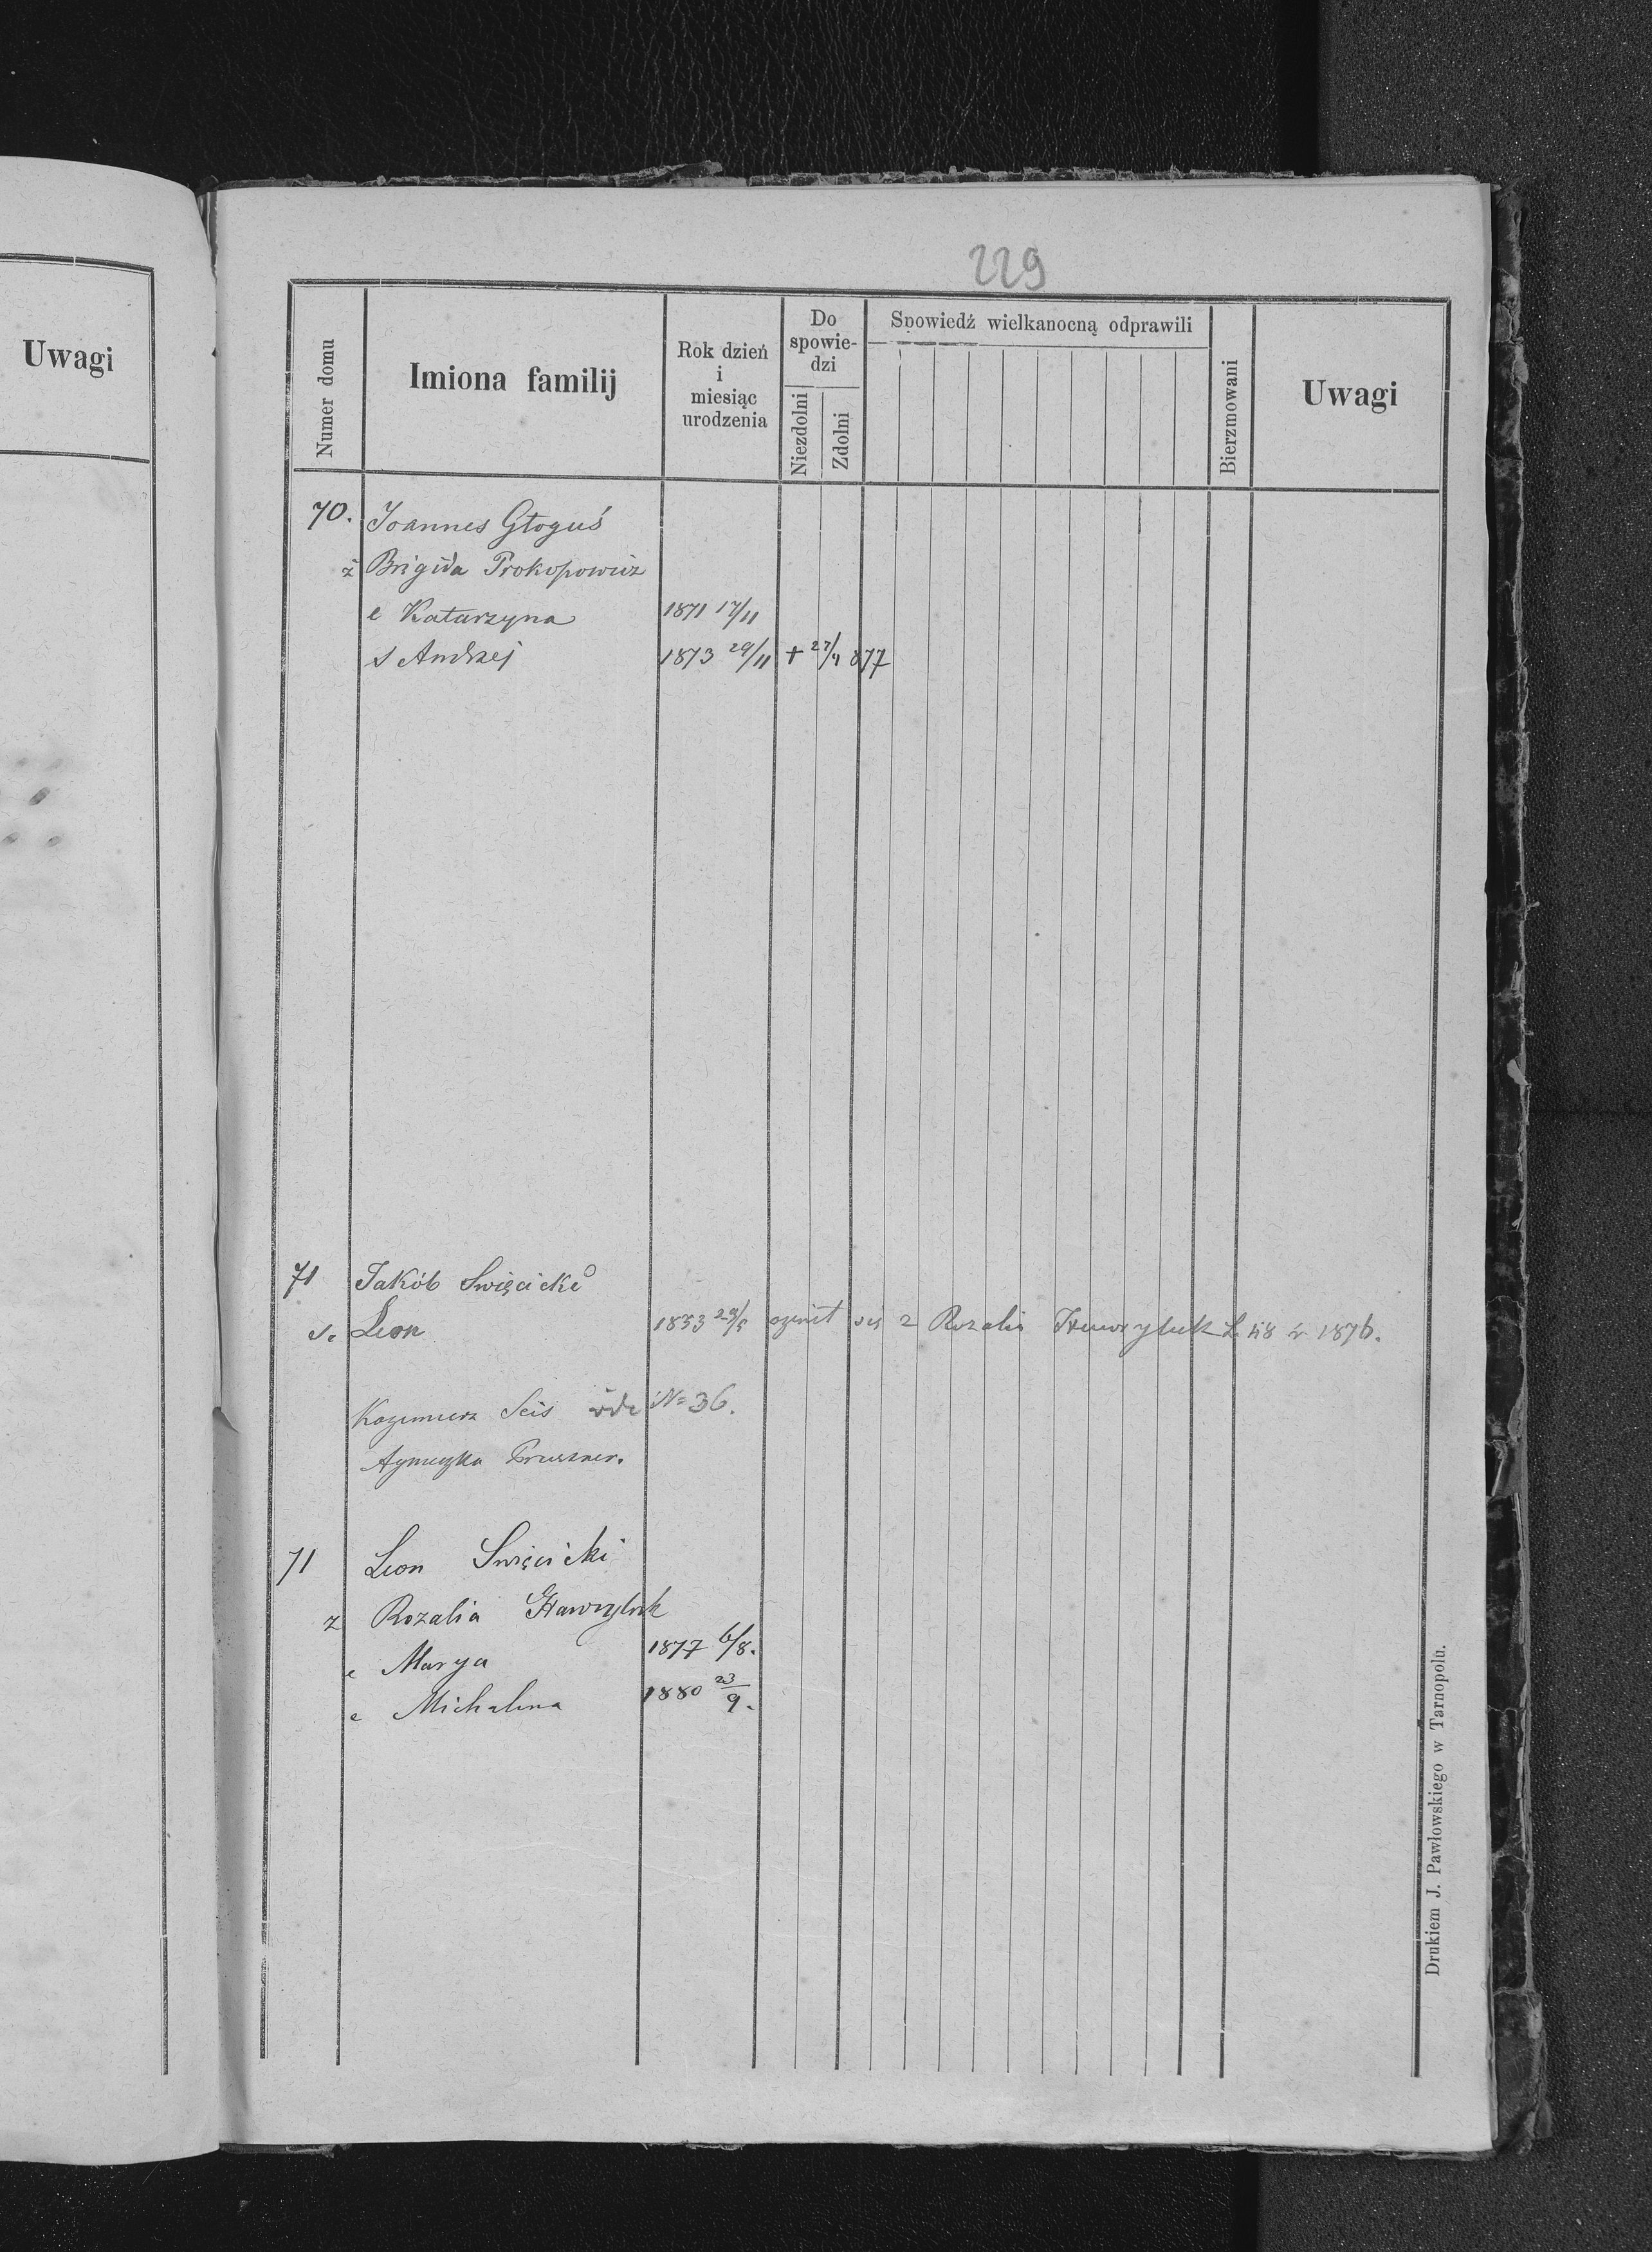 Uwagi
229
Numer domu
Imiona familij
Rok dzień
i
miesiąc
urodzenia
Do
spowie-
dzi
Niezdolni
Zdolni
Spowiedź wielkanocną odprawili
Bierzmowani
Uwagi
70. Joannes Głoguś
ż Brigida Prokopowicz
c Katarzyna 1871 17/11
s Andrzej 1873 29/11 + 27/4 877
71 Jakób Swięcicki
s. Leon 1853 29/5 ożenił się z Rozalią Hawryluk L 58 r 1876.
Kazimierz Seis vide N= 36.
Agnieszka
71 Leon Swięcicki
z Rozalia Hawryluk
c Marya 1877 6/8.
c Michalina 1880 23/9.
Drukiem J. Pawłowskiego w Tarnopolu.